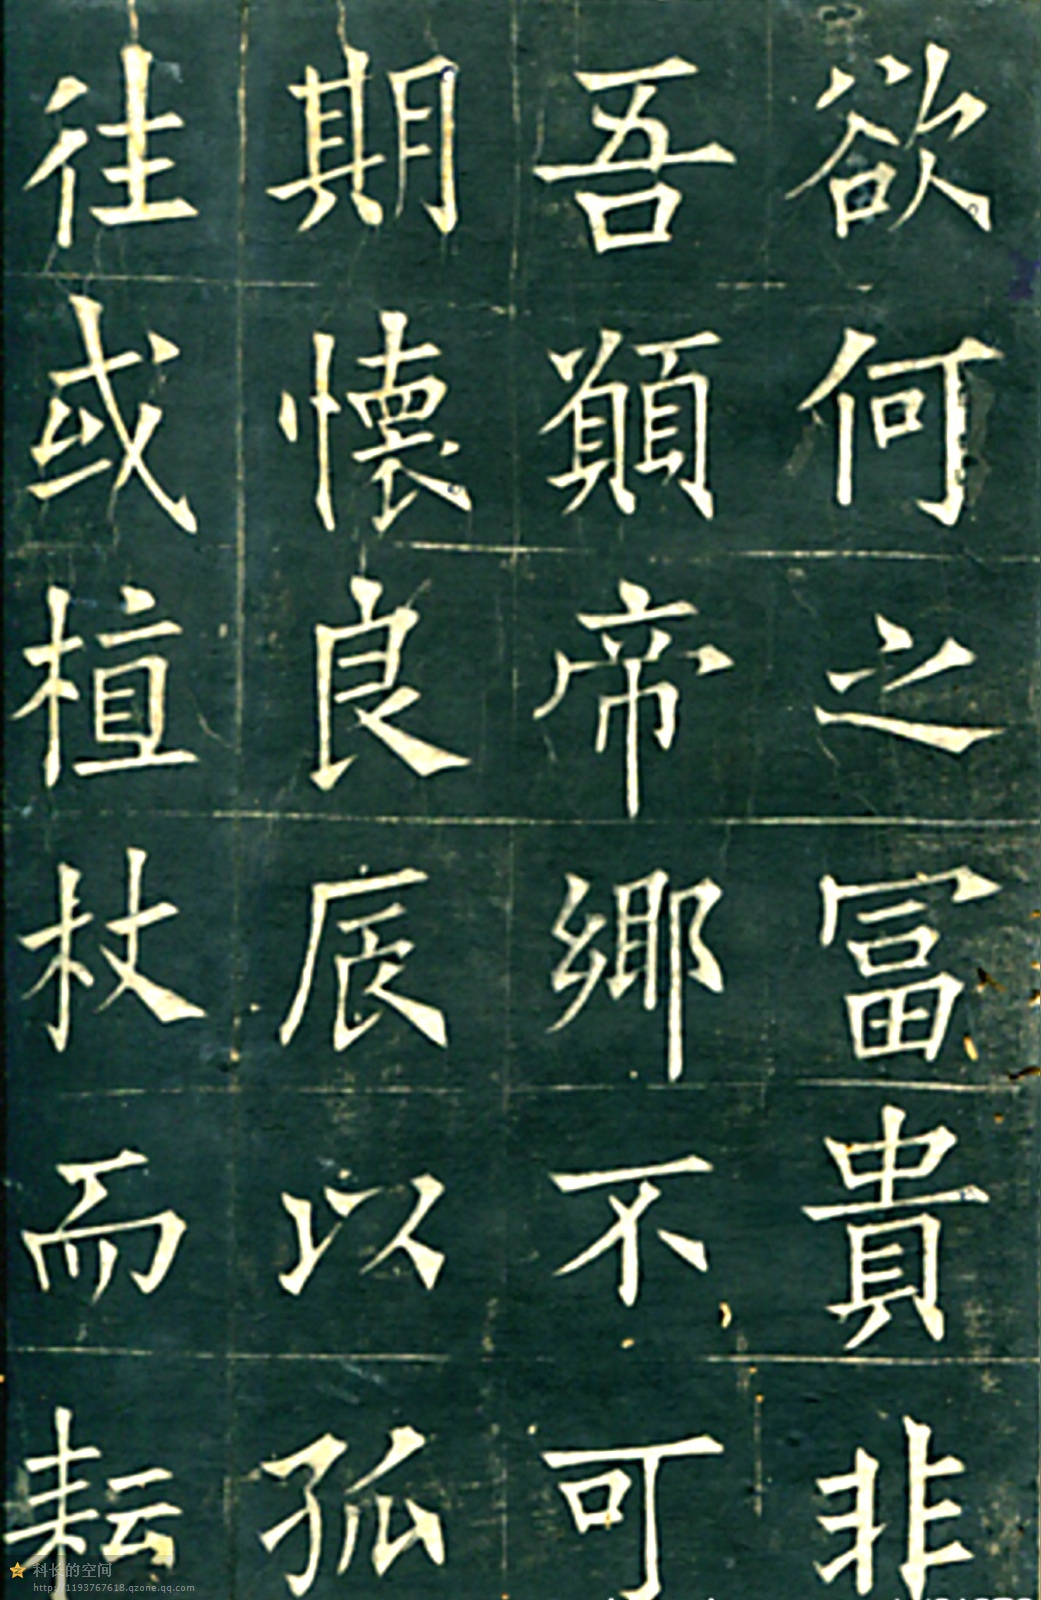 欲何之富貴非
吾願帝鄉不可
期懷良辰以孤
往或植杖而耘
科长的空间
http://1193767618.qzone.qq.com